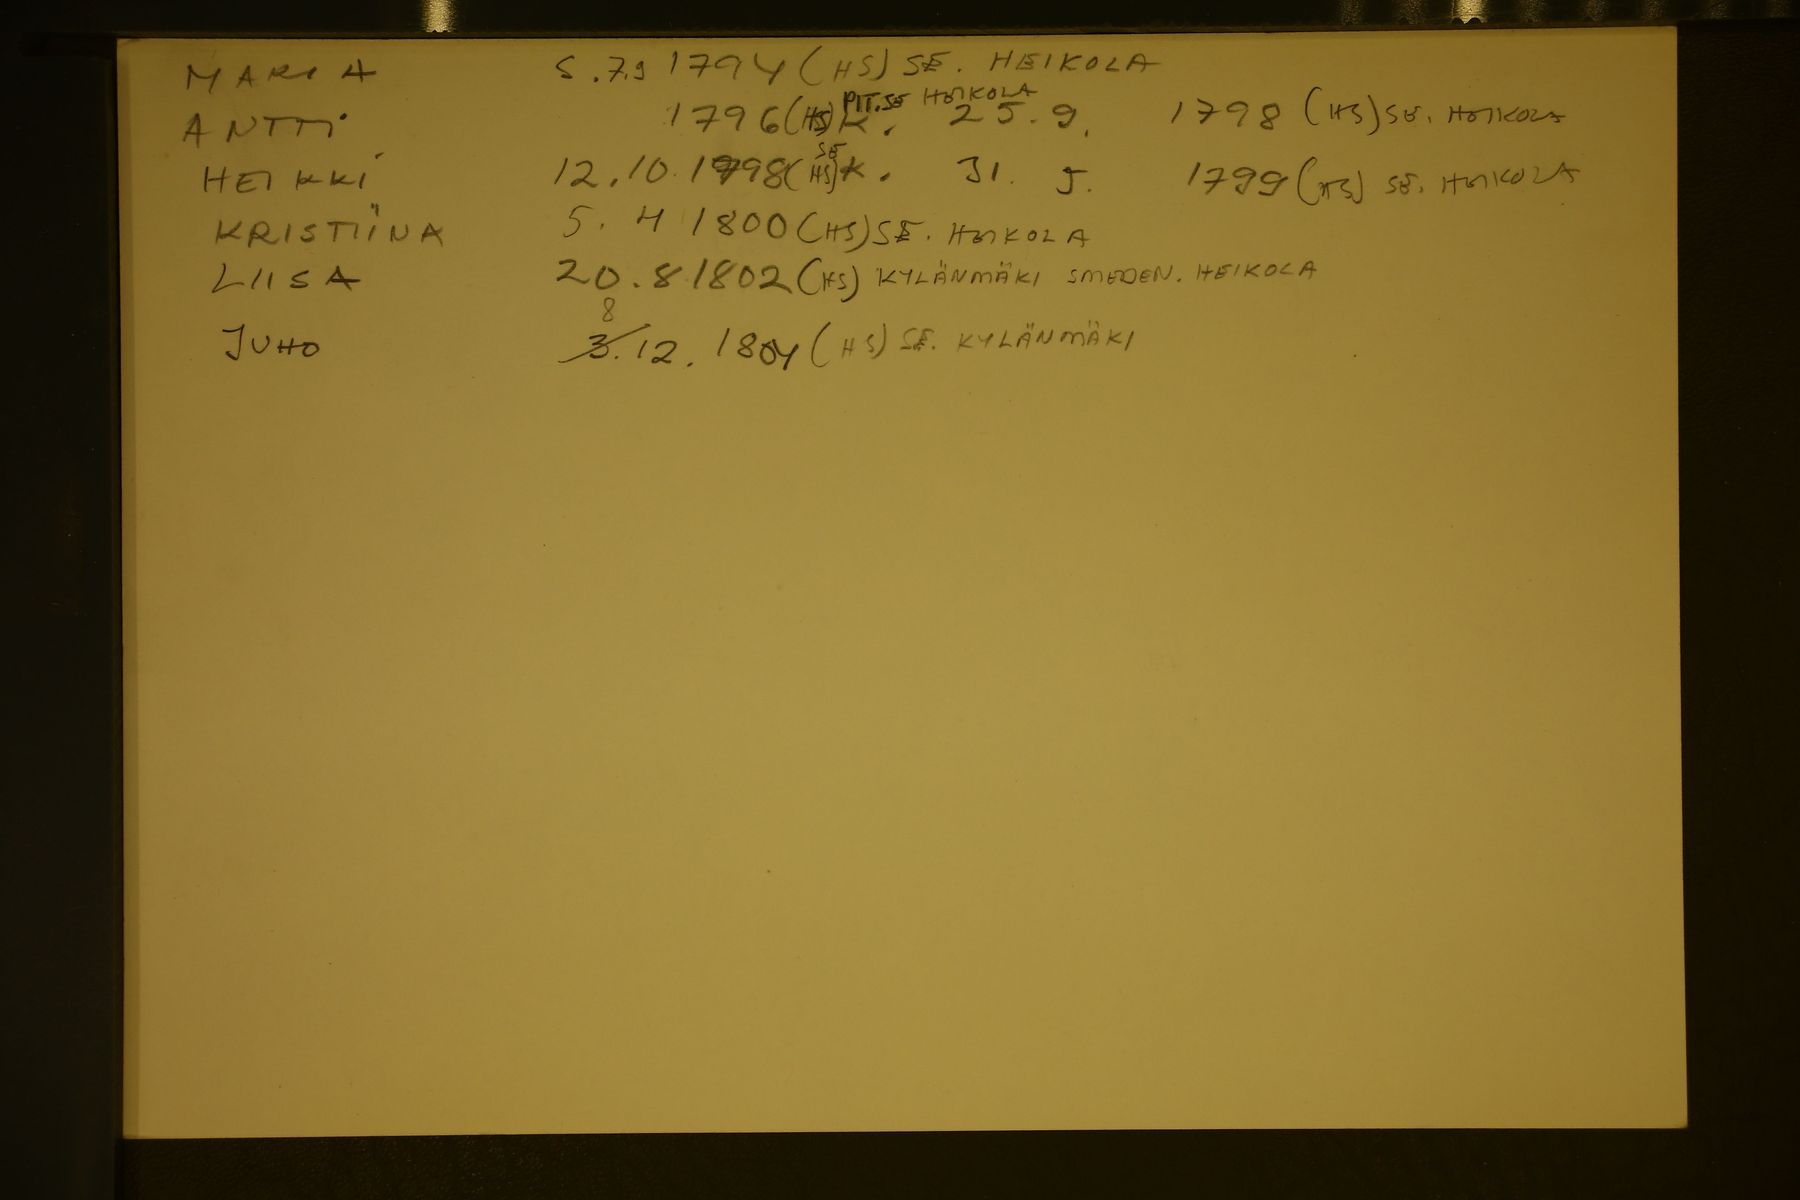 MARIA 5.7.9 1794 (HS) SE. HEIKOLA
PIT. SE HEIKOLA
ANTTI 1796 (HS) K. 25.9. 1798 (HS) SE. HEIKOLA
SE
HEIKKI 12.10.1798 (HS) K. 31. 5. 1799 (HS) SE. HEIKOLA
KRISTIINA 5. 4 1800 (HS) SE. HEIKOLA
LIISA 20.8 1802 (HS) KYLÄNMÄKI SMEDEN. HEIKOLA
8
JUHO 3.12. 1804 (HS) SE. KYLÄNMÄKI